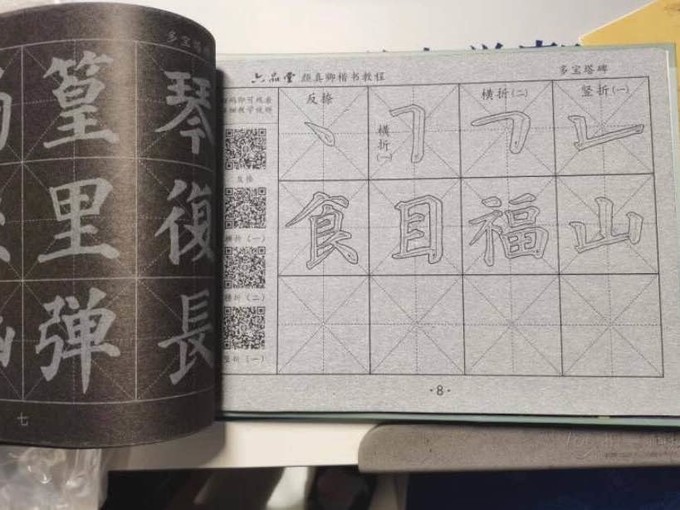 多宝塔碑
篁 琴
里 復
弹 長
七
六品堂 颜真卿楷书教程 多宝塔碑
反捺 横折(一) 横折(二) 竖折(一)
食 目 福 山
反捺
横折(一)
横折(二)
竖折(一)
·8·